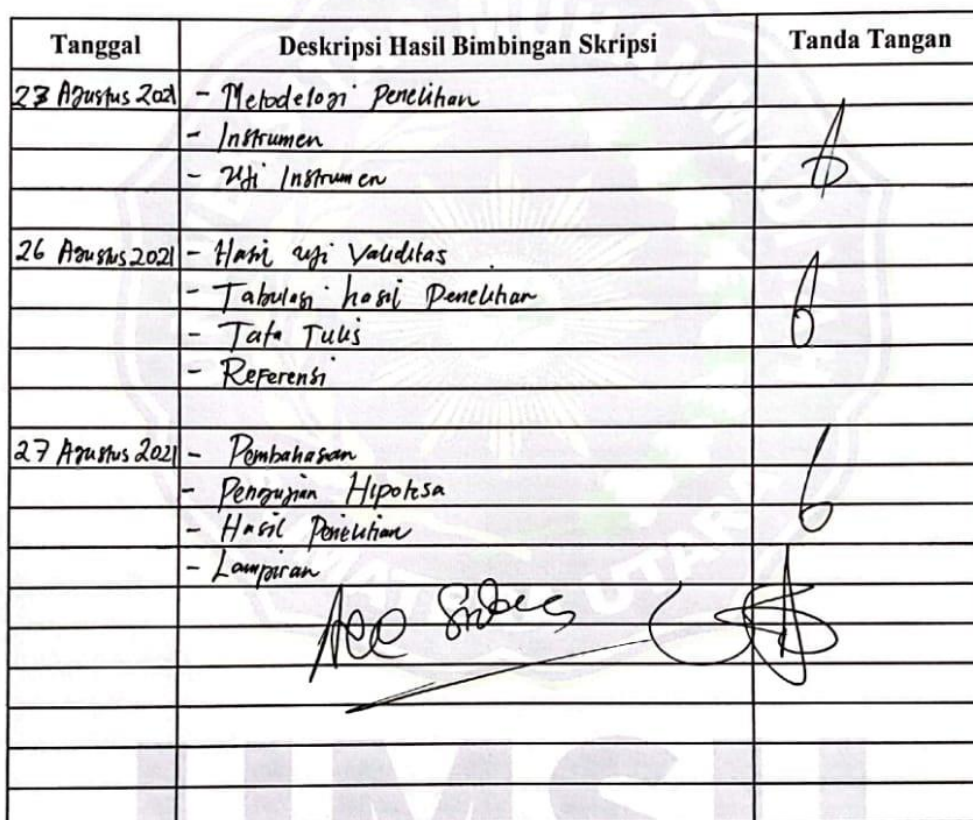 Tanggal Deskripsi Hasil Bimbingan Skripsi Tanda Tangan
23 Agustus 2021 - Metodelogi Penelitian
- Instrumen
- Uji Instrumen
26 Agustus 2021 - Hasil uji Validitas
- Tabulasi hasil Penelitian
- Tata Tulis
- Referensi
27 Agustus 2021 - Pembahasan
- Pengujian Hipotesa
- Hasil Penelitian
- Lampiran
Acc
UMSU